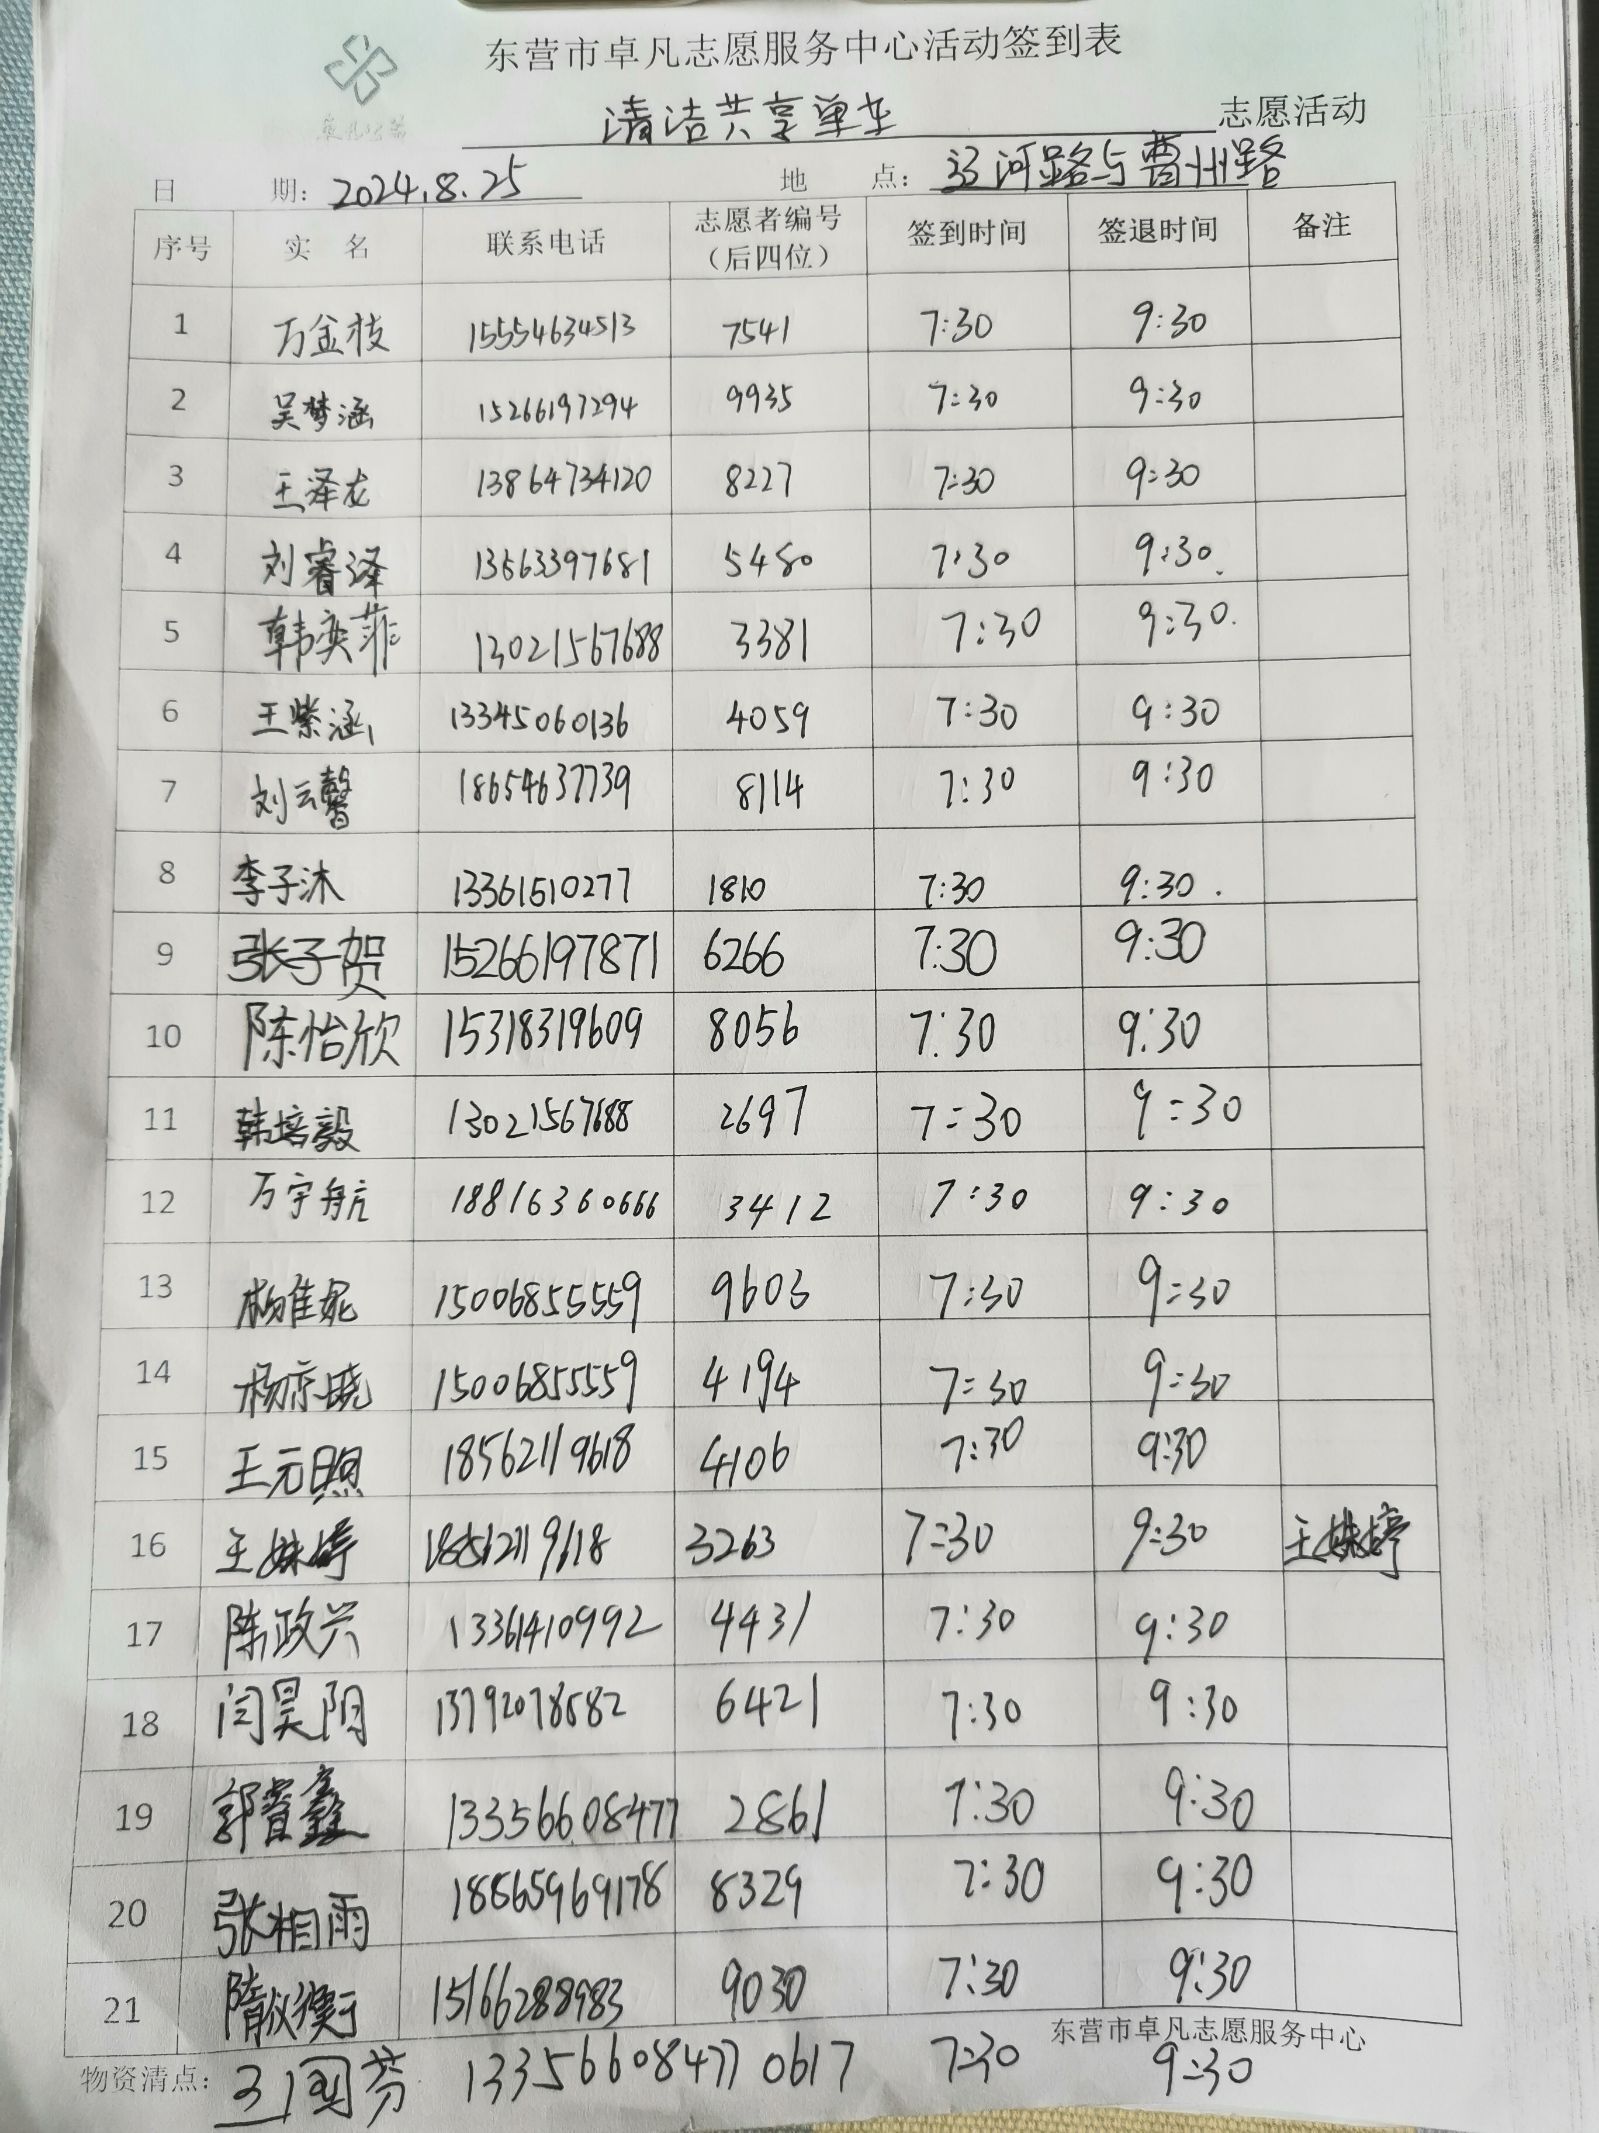 东营市卓凡志愿服务中心活动签到表
清洁共享单车 志愿活动
日 期: 2024.8.25 地 点: 辽河路与曹州路
序号 实 名 联系电话 志愿者编号(后四位) 签到时间 签退时间 备注
1 万金枝 15554634513 7541 7:30 9:30
2 吴梦涵 15266197294 9935 7:30 9:30
3 王泽龙 13864734120 8227 7:30 9:30
4 刘睿泽 13563397681 5480 7:30 9:30.
5 韩奕菲 13021567688 3381 7:30 9:30.
6 王紫涵 13345060136 4059 7:30 9:30
7 刘云馨 18654637739 8114 7:30 9:30
8 李子沐 13361510277 1810 7:30 9:30.
9 张子贺 15266197871 6266 7:30 9:30
10 陈怡欣 15318319609 8056 7:30 9:30
11 韩培毅 13021567688 2697 7:30 9:30
12 万宇航 18816360666 3412 7:30 9:30
13 杨佳妮 15006855559 9603 7:30 9:30
14 杨亦晓 15006855559 4194 7:30 9:30
15 王元照 18562119618 4106 7:30 9:30
16 王姝婷 18562119618 3263 7:30 9:30 王姝婷
17 陈政兴 13361410992 4431 7:30 9:30
18 闫昊阳 13792078582 6421 7:30 9:30
19 郭睿鑫 13356608477 2861 7:30 9:30
20 张相雨 18865969178 8329 7:30 9:30
21 隋 15166288983 9030 7:30 9:30
东营市卓凡志愿服务中心
物资清点: 王国芬 13356608477 0617 7:30 9:30